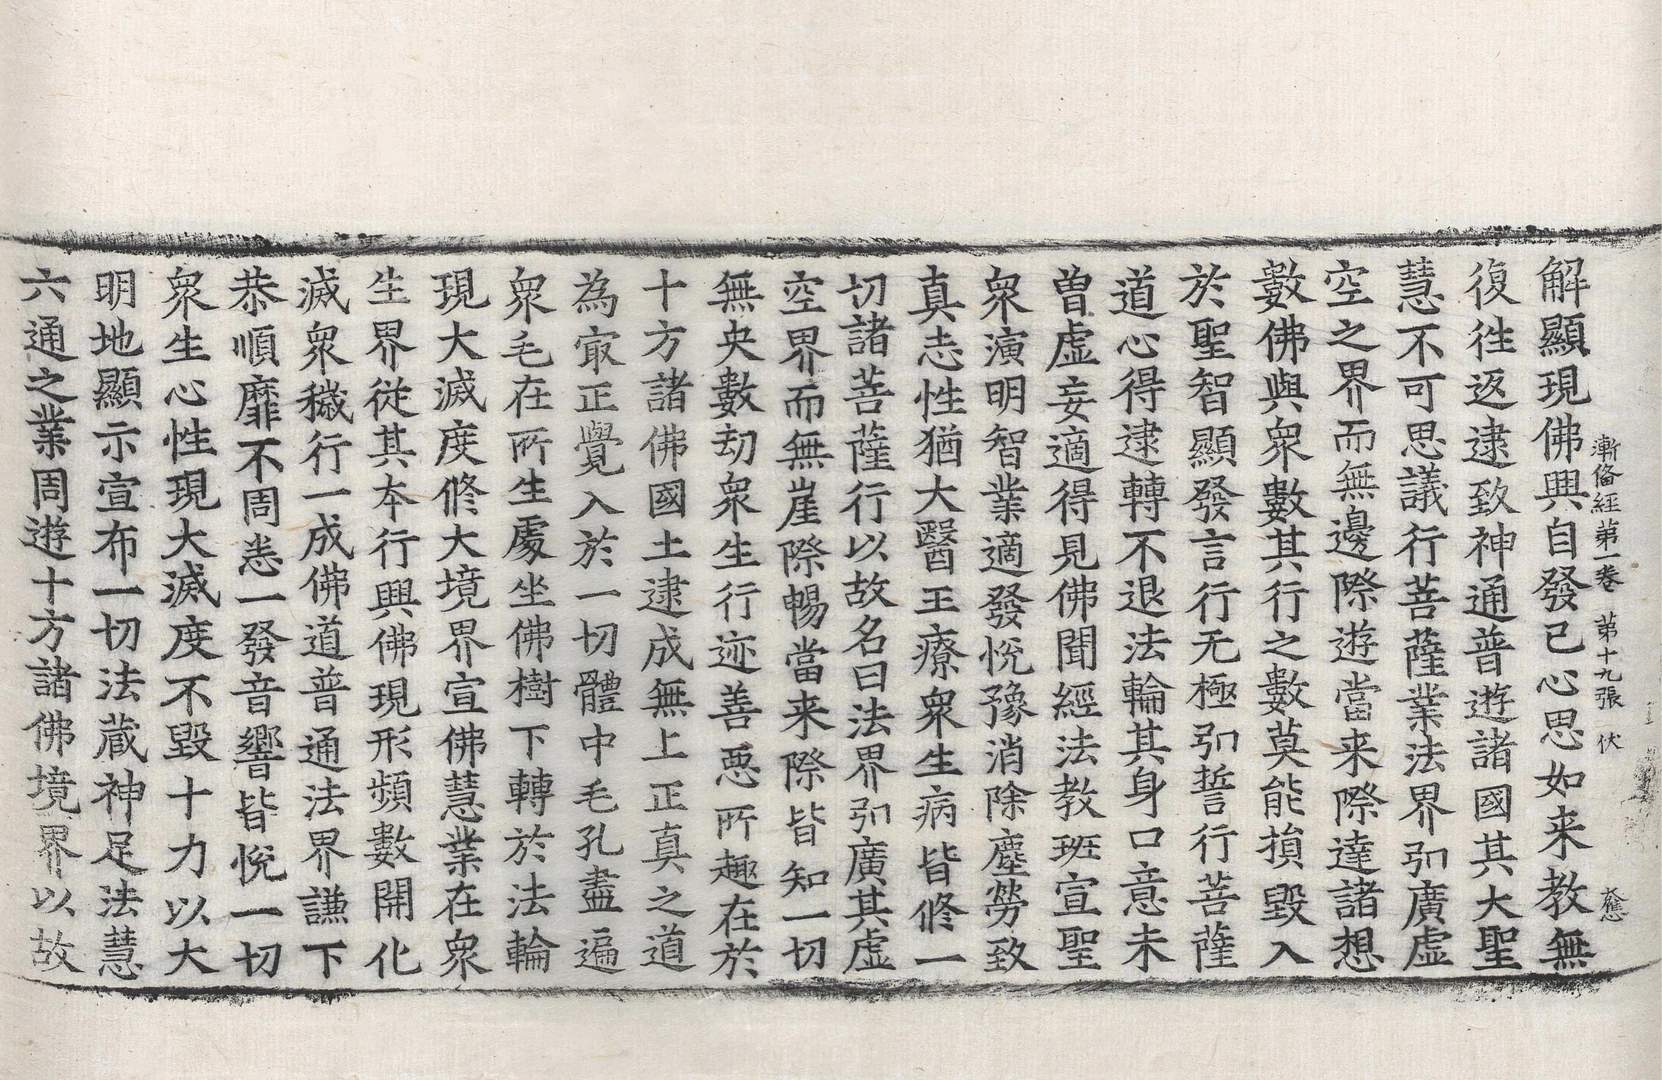 漸備經第一卷 第十九張 伏
解顯現佛興自發已心思如来教無
復徃返逮致神通普遊諸國其大聖
慧不可思議行菩薩業法界弘廣虛
空之界而無邊際遊當来際達諸想
數佛與衆數其行之數莫能損毀入
於聖智顯發言行无極弘誓行菩薩
道心得逮轉不退法輪其身口意未
曽虛妄適得見佛聞經法教班宣聖
衆演明智業適發悅豫消除塵勞致
真志性猶大醫王療衆生病皆修一
切諸菩薩行以故名曰法界弘廣其虛
空界而無崖際暢當来際皆知一切
無央數劫衆生行迹善惡所趣在於
十方諸佛國土逮成無上正真之道
為㝡正覺入於一切體中毛孔盡遍
衆毛在所生處坐佛樹下轉於法輪
現大滅度修大境界宣佛慧業在衆
生界從其本行興佛現形頻數開化
滅衆穢行一成佛道普通法界謙下
恭順靡不周悉一發音響皆悅一切
衆生心性現大滅度不毀十力以大
明地顯示宣布一切法蔵神足法慧
六通之業周遊十方諸佛境界以故